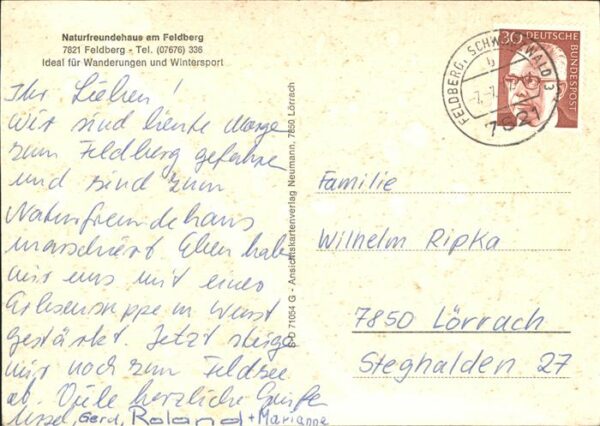 Naturfreundehaus am Feldberg
7821 Feldberg - Tel. (07676) 336
Ideal für Wanderungen und Wintersport
Ihr Lieben!
Wir sind heute Morge
zum Feldberg gefahre
und sind zum
Naturfreundehaus
marschiert. Eben hab
wir uns mit einer
Erbsensuppe m. Wurst
gestärkt. Jetzt steige
wir noch zum Feldsee
ab. Viele herzliche Grüße
Gerd, Roland + Marianne
71054 G - Ansichtskartenverlag Neumann, 7850 Lörrach
30 DEUTSCHE
BUNDESPOST
FELDBERG, SCHWARZWALD 3
7821
Familie
Wilhelm Ripka
7850 Lörrach
Steghalden 27